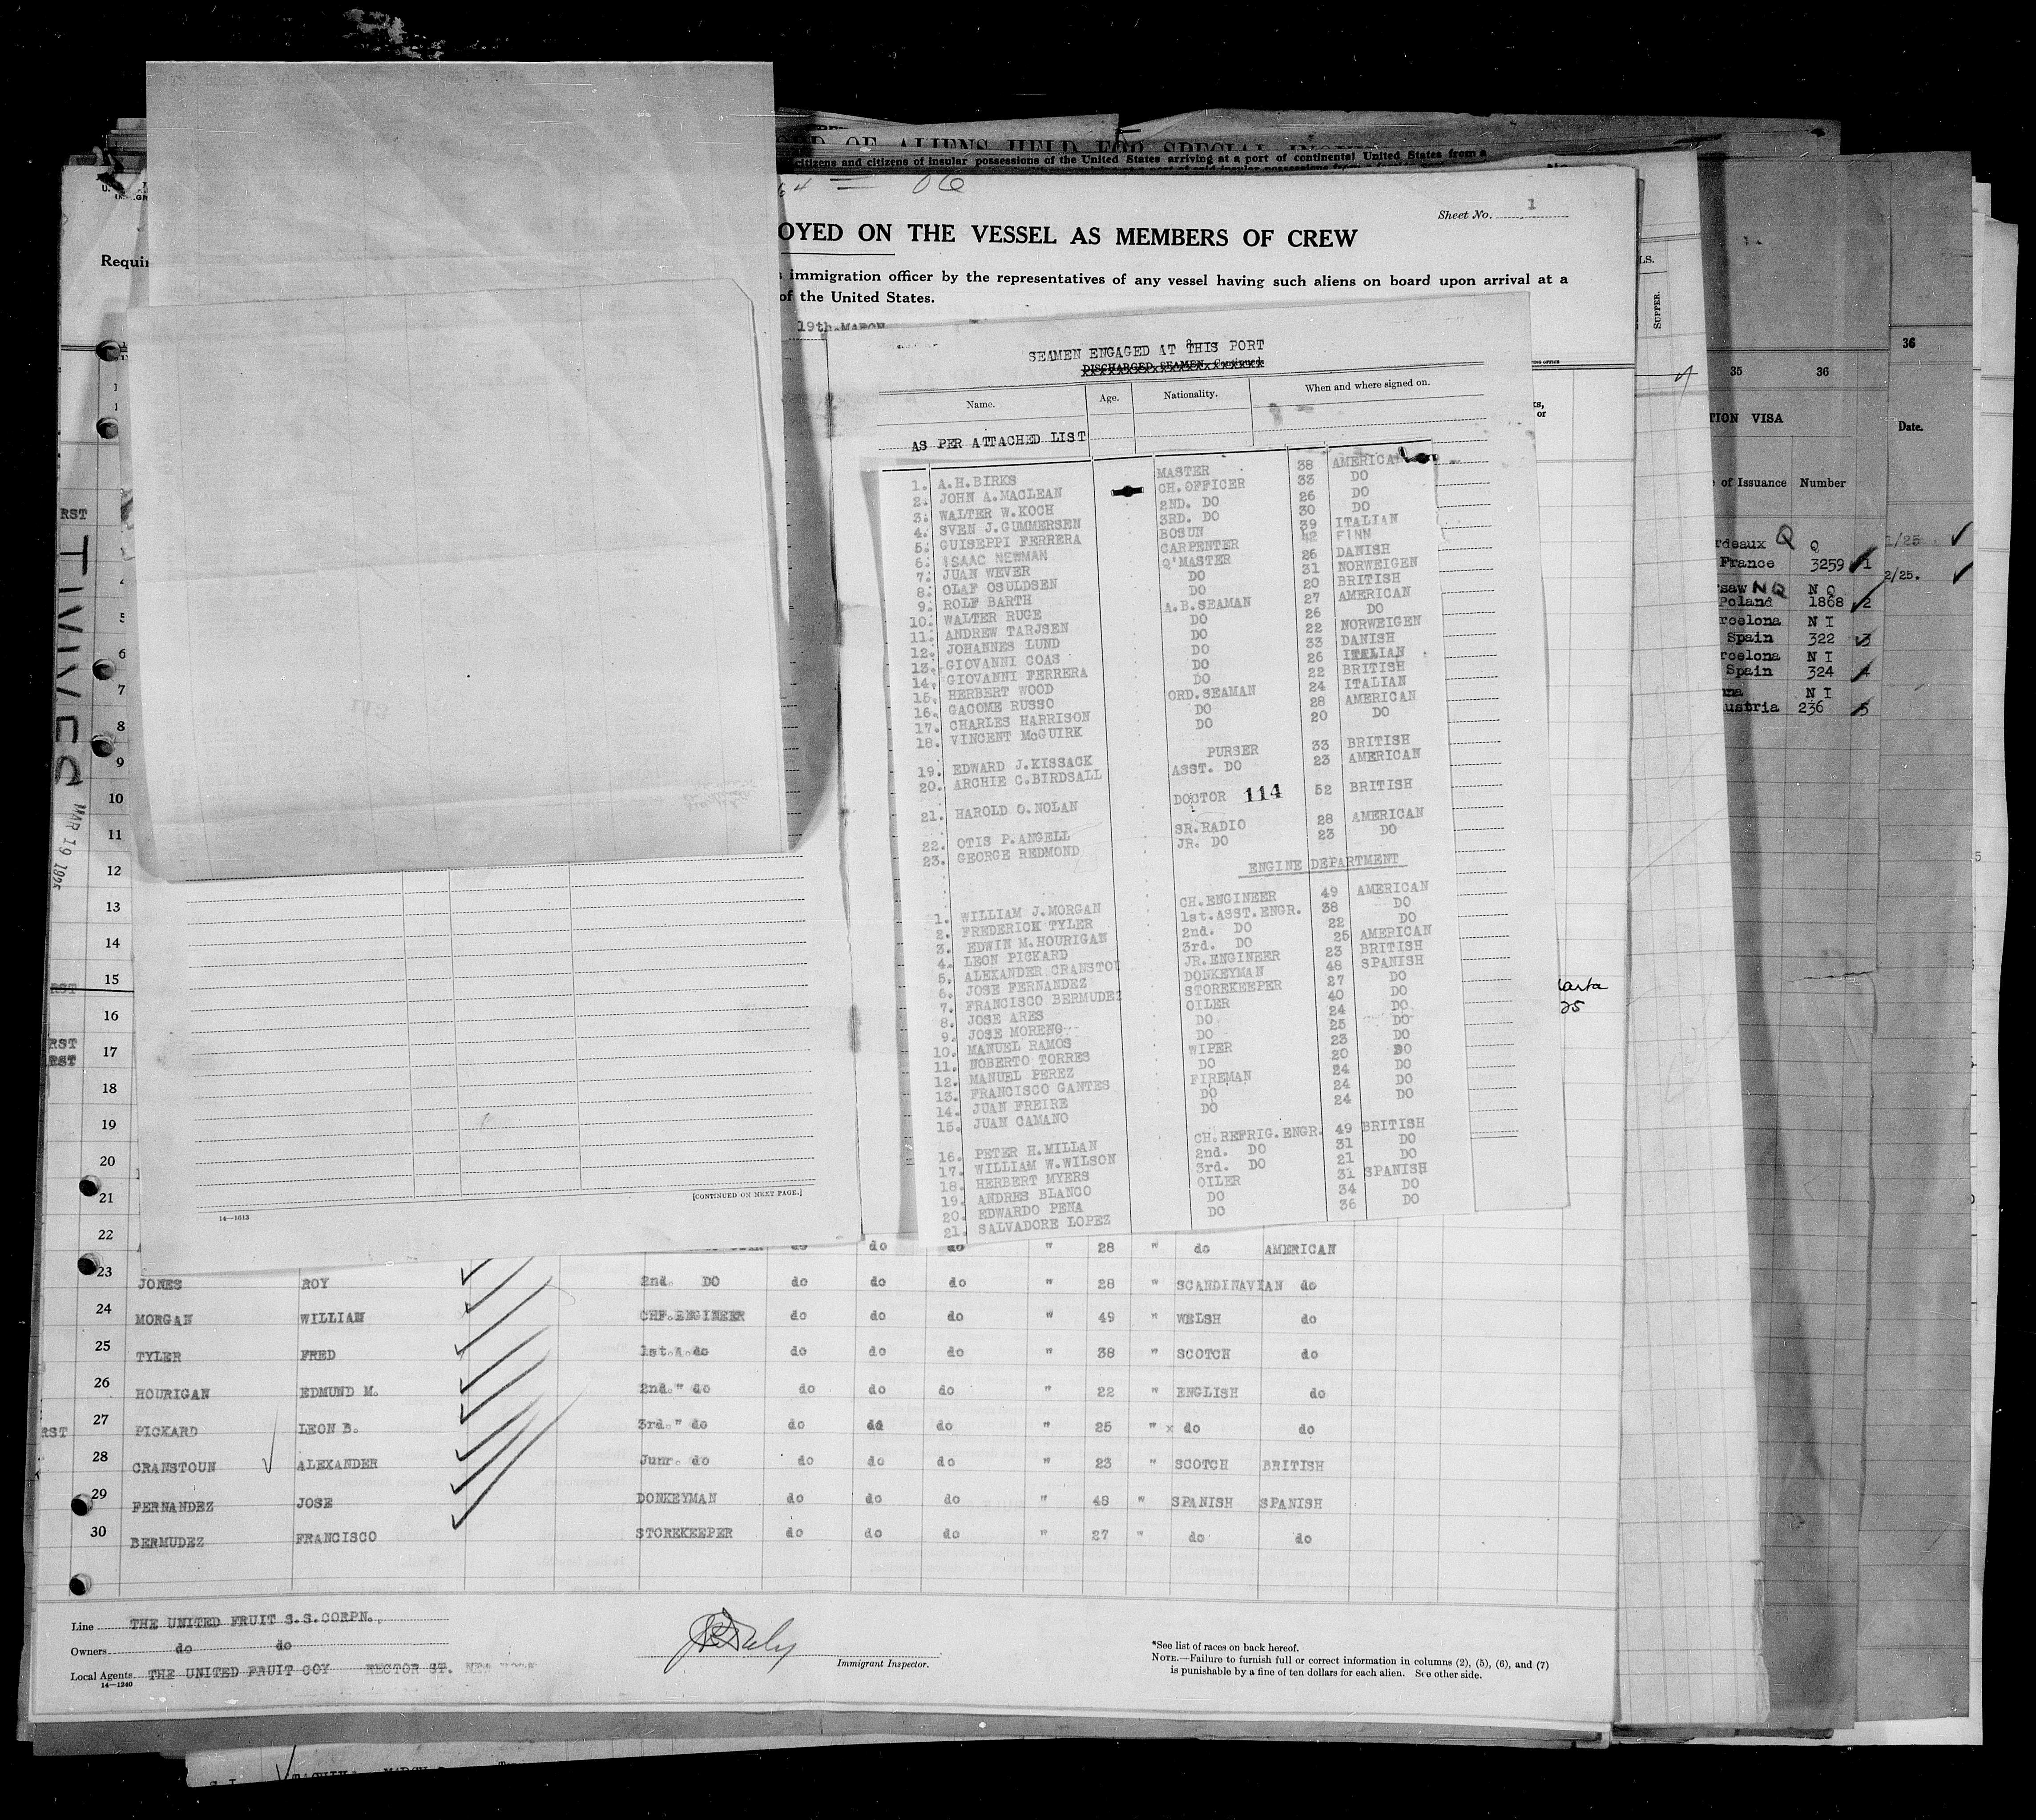 OF ALIENS HELD FOR SPECIAL
citizens and citizens of insular possessions of the United States arriving at a port of continental United States from a
Sheet No. 1
OYED ON THE VESSEL AS MEMBERS OF CREW
Requir
immigration officer by the representatives of any vessel having such aliens on board upon arrival at a
of the United States.
19th MARCH
SEAMEN ENGAGED AT THIS PORT
DISCHARGED SEAMEN—Continued
Name. Age. Nationality. When and where signed on.
AS PER ATTACHED LIST
1. A.H.BIRKS MASTER 38 AMERICAN
2. JOHN A.MACLEAN CH.OFFICER 33 DO
3. WALTER W.KOCH 2ND. DO 26 DO
4. SVEN J.GUMMERSEN 3RD. DO 30 DO
5. GUISEPPI FERRERA BOSUN 39 ITALIAN
6. ISAAC NEWMAN CARPENTER 42 FINN
7. JUAN WEVER Q'MASTER 26 DANISH
8. OLAF OSULDSEN DO 31 NORWEIGEN
9. ROLF BARTH DO 20 BRITISH
10. WALTER RUGE A.B.SEAMAN 27 AMERICAN
11. ANDREW TARJSEN DO 26 DO
12. JOHANNES LUND DO 22 NORWEIGEN
13. GIOVANNI COAS DO 33 DANISH
14. GIOVANNI FERRERA DO 26 ITALIAN
15. HERBERT WOOD DO 22 BRITISH
16. GACOME RUSSO ORD.SEAMAN 24 ITALIAN
17. CHARLES HARRISON DO 28 AMERICAN
18. VINCENT McGUIRK DO 20 DO
19. EDWARD J.KISSACK PURSER 33 BRITISH
20. ARCHIE C.BIRDSALL ASST. DO 23 AMERICAN
21. HAROLD O.NOLAN DOCTOR 114 52 BRITISH
22. OTIS P.ANGELL SR.RADIO 28 AMERICAN
23. GEORGE REDMOND JR. DO 23 DO
ENGINE DEPARTMENT
1. WILLIAM J.MORGAN CH.ENGINEER 49 AMERICAN
2. FREDERICK TYLER 1st.ASST.ENGR. 38 DO
3. EDWIN M.HOURIGAN 2nd. DO 22 DO
4. LEON PICKARD 3rd. DO 25 AMERICAN
5. ALEXANDER CRANSTOU JR.ENGINEER 23 BRITISH
6. JOSE FERNANDEZ DONKEYMAN 48 SPANISH
7. FRANCISCO BERMUDEZ STOREKEEPER 27 DO
8. JOSE ARES OILER 40 DO
9. JOSE MORENO DO 24 DO
10. MANUEL RAMOS DO 25 DO
11. NOBERTO TORRES WIPER 23 DO
12. MANUEL PEREZ DO 20 DO
13. FRANCISCO GANTES FIREMAN 24 DO
14. JUAN FREIRE DO 24 DO
15. JUAN CAMANO DO 24 DO
16. PETER H.MILLAN CH.REFRIG.ENGR. 49 BRITISH
17. WILLIAM W.WILSON 2nd. DO 31 DO
18. HERBERT MYERS 3rd. DO 21 DO
19. ANDRES BLANCO OILER 31 SPANISH
20. EDWARDO PENA DO 34 DO
21. SALVADORE LOPEZ DO 36 DO
[CONTINUED ON NEXT PAGE.]
14—1613
MAR 19 1925
22 do do do " 28 " do AMERICAN
23 JONES ROY 2nd. DO do do do " 28 " SCANDINAVIAN do
24 MORGAN WILLIAM CHF.ENGINEER do do do " 49 " WELSH do
25 TYLER FRED 1st.A.do do do do " 38 " SCOTCH do
26 HOURIGAN EDMUND M. 2nd." do do do do " 22 " ENGLISH do
27 PICKARD LEON B. 3rd." do do do do " 25 " x do do
28 CRANSTOUN ALEXANDER Junr. do do do do " 23 " SCOTCH BRITISH
29 FERNANDEZ JOSE DONKEYMAN do do do " 48 " SPANISH SPANISH
30 BERMUDEZ FRANCISCO STOREKEEPER do do do " 27 " do do
Line THE UNITED FRUIT S.S.CORPN.
Owners do do
Local Agents THE UNITED FRUIT COY RECTOR ST. NEW YORK
14—1240
Immigrant Inspector.
*See list of races on back hereof.
NOTE.—Failure to furnish full or correct information in columns (2), (5), (6), and (7)
is punishable by a fine of ten dollars for each alien. See other side.
SUPPER.
35 36
TION VISA
of Issuance Number
rdeaux Q Q
France 3259 1
rsaw NQ N Q
Poland 1868 2
rcelona N I
Spain 322 3
rcelona N I
Spain 324 4
N I
ustria 236 5
36
Date.
1/25
2/25.